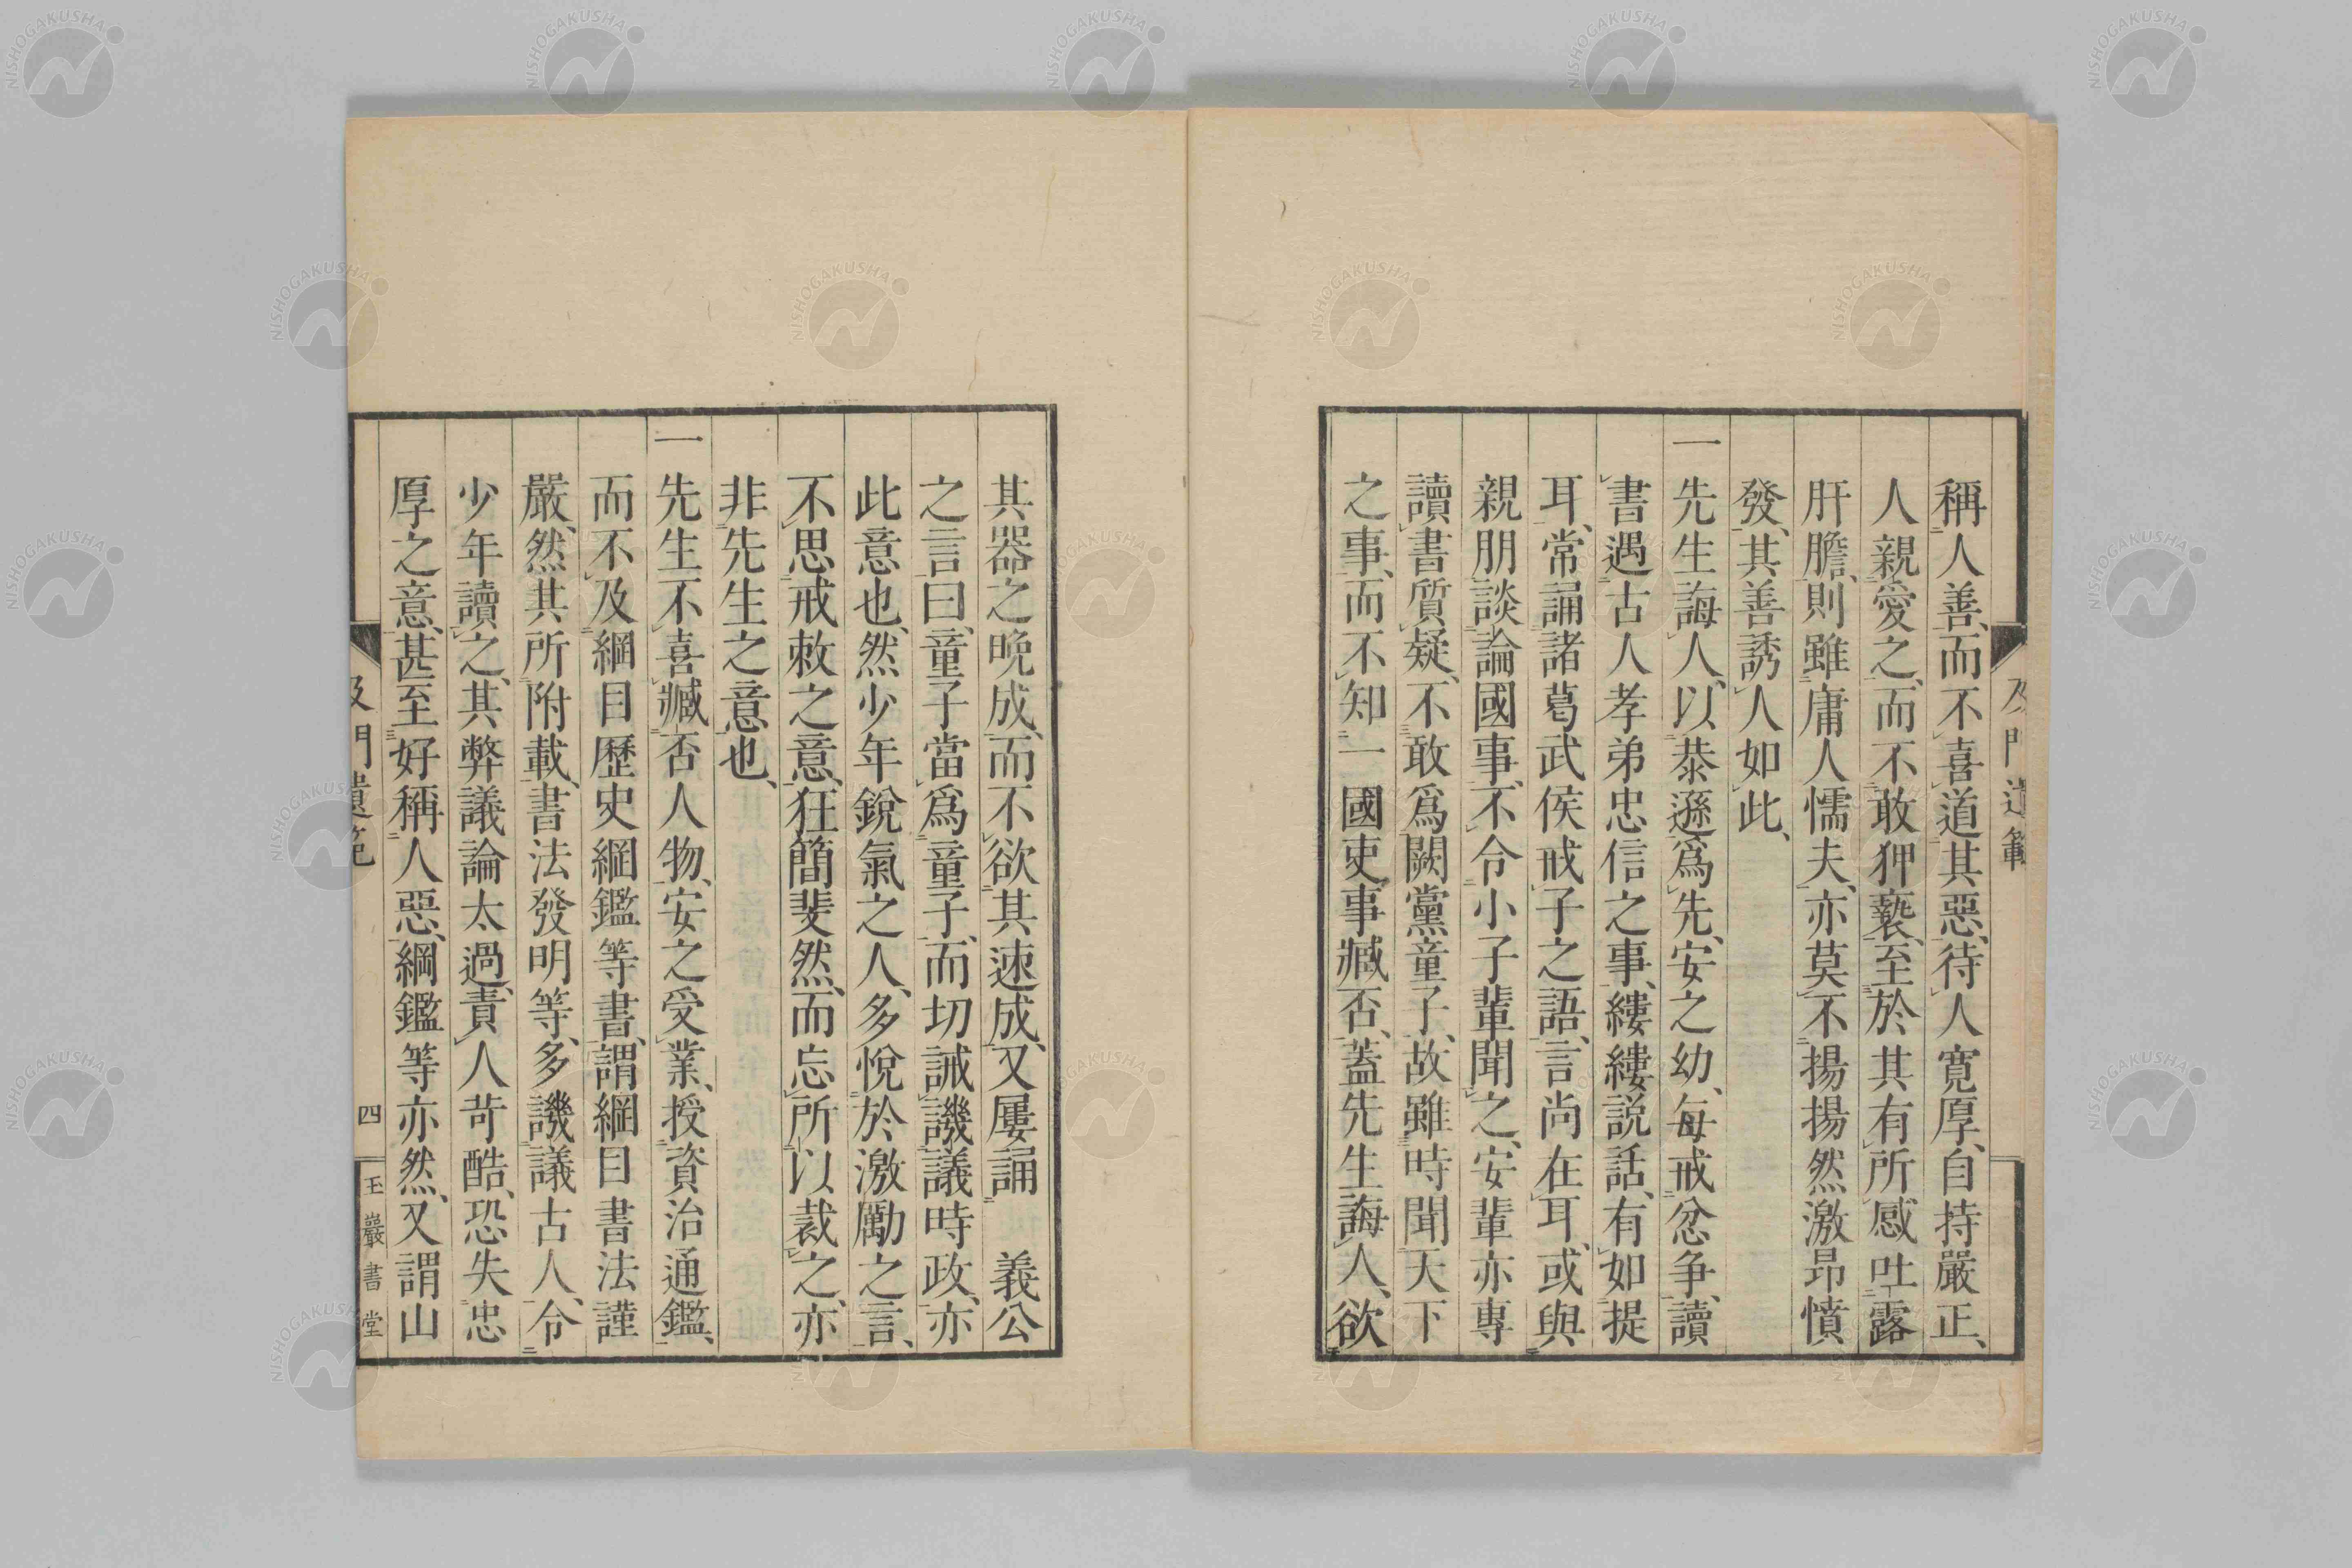 稱人善、而不喜道其惡、待人寛厚、自持嚴正、
人親愛之、而不敢狎褻、至於其有所感吐露
肝膽、則雖庸人懦夫、亦莫不揚揚然激昂憤
發、其善誘人如此、
一先生誨人、以恭遜爲先、安之幼、毎戒忿争、讀
書遇古人孝弟忠信之事、縷縷説話、有如提
耳、常誦諸葛武侯戒子之語、言尚在耳、或與
親朋談論國事、不令小子輩聞之、安輩亦專
讀書質疑、不敢爲闕黨童子、故雖時聞天下
之事、而不知一國吏事臧否、蓋先生誨人、欲
其器之晩成、而不欲其速成、又屢誦　義公
之言曰、童子當爲童子、而切誡譏議時政、亦
此意也、然少年鋭氣之人、多悅於激勵之言、
不思戒敕之意、狂簡斐然、而忘所以裁之、亦
非先生之意也、
一先生不喜臧否人物、安之受業、授資治通鑑、
而不及綱目歷史綱鑑等書、謂綱目書法謹
嚴、然其所附載、書法發明等、多譏議古人、令
少年讀之、其弊議論太過、責人苛酷、恐失忠
厚之意、甚至好稱人惡、綱鑑等亦然、又謂山
及門遺範
四
玉巖書堂
及門遺範
NISHOGAKUSHA